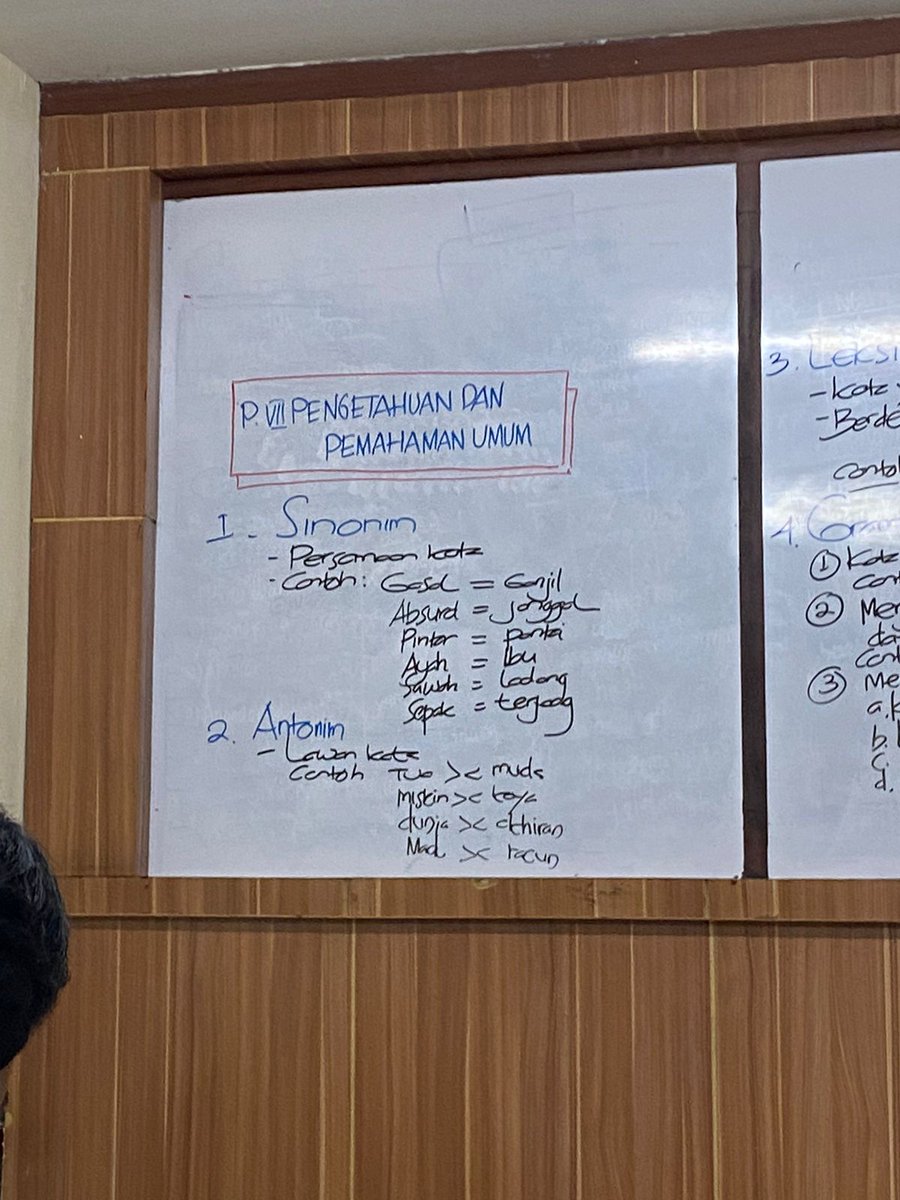 P. VII PENGETAHUAN DAN
PEMAHAMAN UMUM
1. Sinonim
- Persamaan kata
- Contoh: Gasal = Ganjil
Absurd = janggal
Pintar = pandai
Ayah = Ibu
Sawah = Ladang
Sepak = terjang
2. Antonim
- Lawan kata
Contoh Tua >< muda
miskin >< kaya
dunia >< akhirat
Mad >< racun
3. LEKSI
- Kata
- Berde
Contoh
4. Gram
① Kata
Cont
② Men
da
Cont
③ Me
a. k
b.
c.
d.